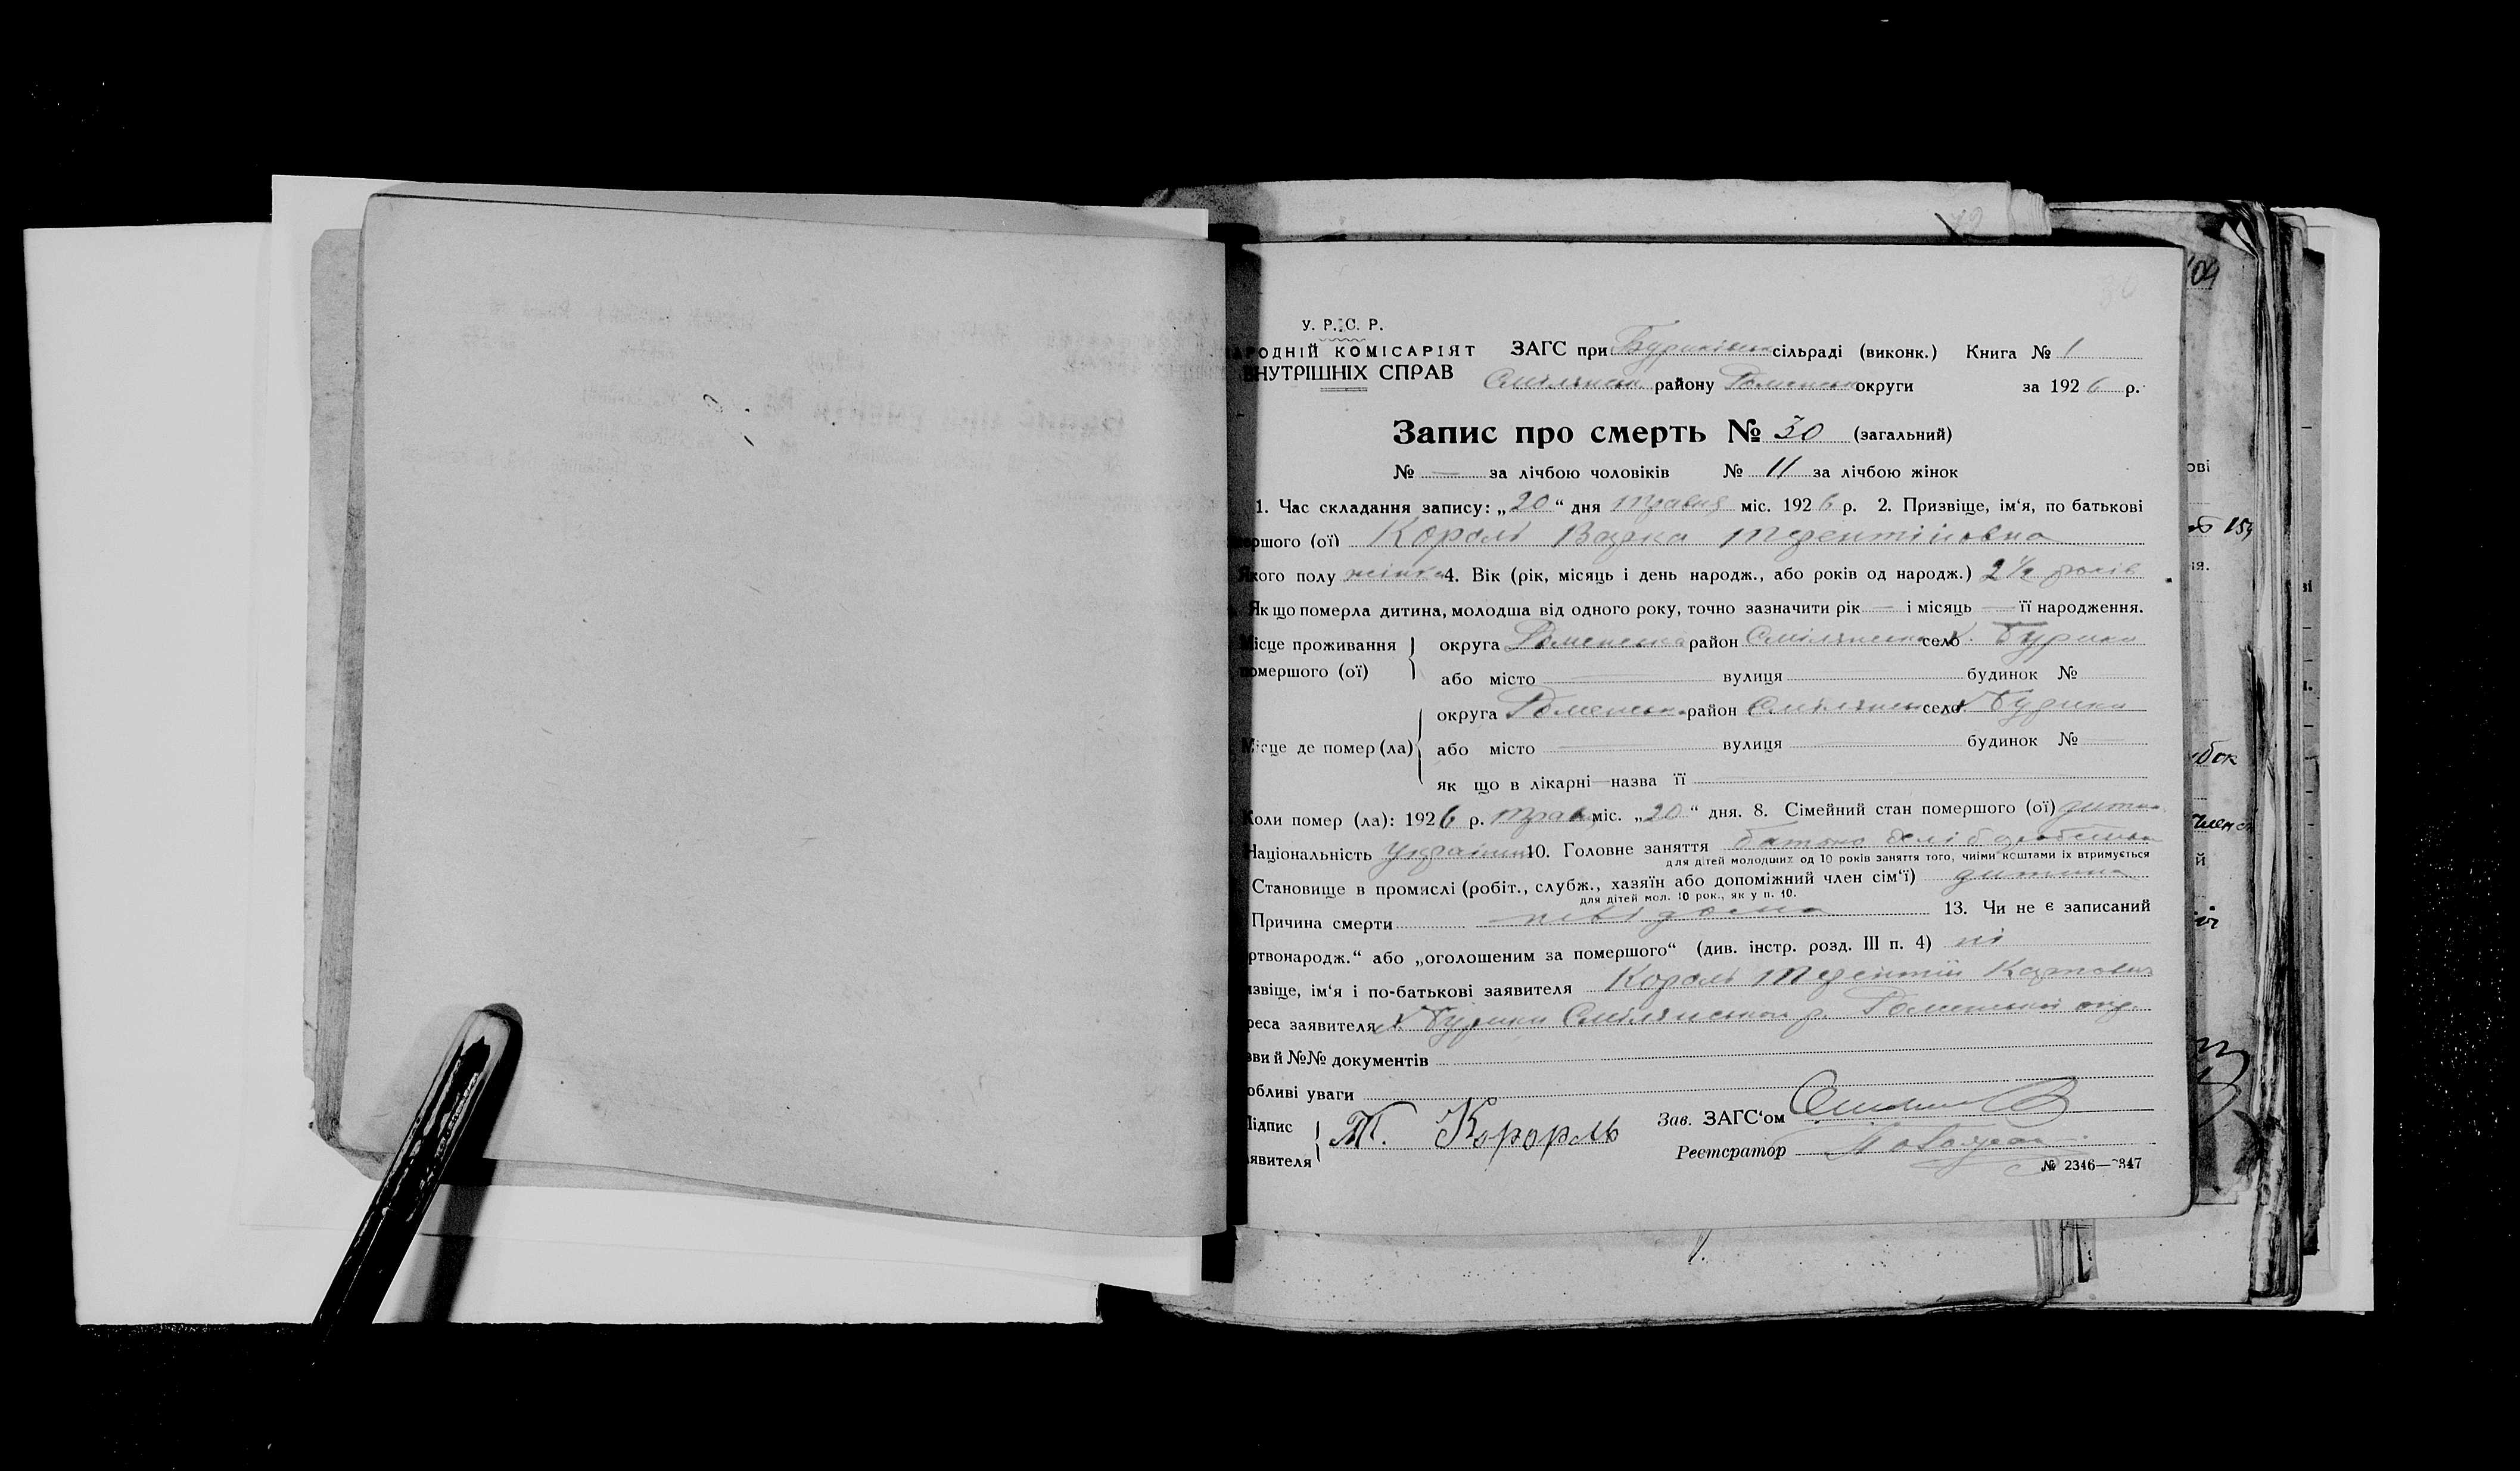 30
У. Р. С. Р.
АРОДНІЙ КОМІСАРІЯТ ЗАГС при сільраді (виконк.) Книга № 1
ВНУТРІШНІХ СПРАВ Смілянськ. району Роменськ округи за 1926 р.
Запис про смерть № 30 (загальний)
№ — за лічбою чоловіків № 11 за лічбою жінок
1. Час складання запису: „20“ дня травня міс. 1926 р. 2. Призвіще, ім‘я, по батькові
ершого (ої) Король Варка Терентіївна
якого полу жінка 4. Вік (рік, місяць і день народж., або років од народж.) 2 1/2 років
Як що померла дитина, молодша від одного року, точно зазначити рік — і місяць — її народження.
Місце проживання округа Роменська район Смілянськ село х. Бурики
помершого (ої) або місто вулиця будинок №
округа Роменська район Смілянськ село х Бурики
Місце де помер (ла) або місто вулиця будинок №
як що в лікарні—назва її
Коли помер (ла): 1926 р. трав. міс. „20“ дня. 8. Сімейний стан помершого (ої) дитина
Національність україн. 10. Головне заняття батько хліборобство
для дітей молодших од 10 років заняття того, чиїми коштами їх втримується
Становище в промислі (робіт., служб., хазяїн або допоміжний член сім‘ї) дитина
для дітей мол. 10 рок., як у п. 10.
Причина смерти невідома 13. Чи не є записаний
ртвонародж.“ або „оголошеним за помершого“ (див. інстр. розд. III п. 4) ні
ізвіще, ім‘я і по-батькові заявителя Король Терентій Карпович
реса заявителя х Бурики Смілянськ р. Роменської окр.
зви й №№ документів
обливі уваги
Підпис Т. Король Зав. ЗАГС‘ом
аявителя Реєстратор
№ 2346—